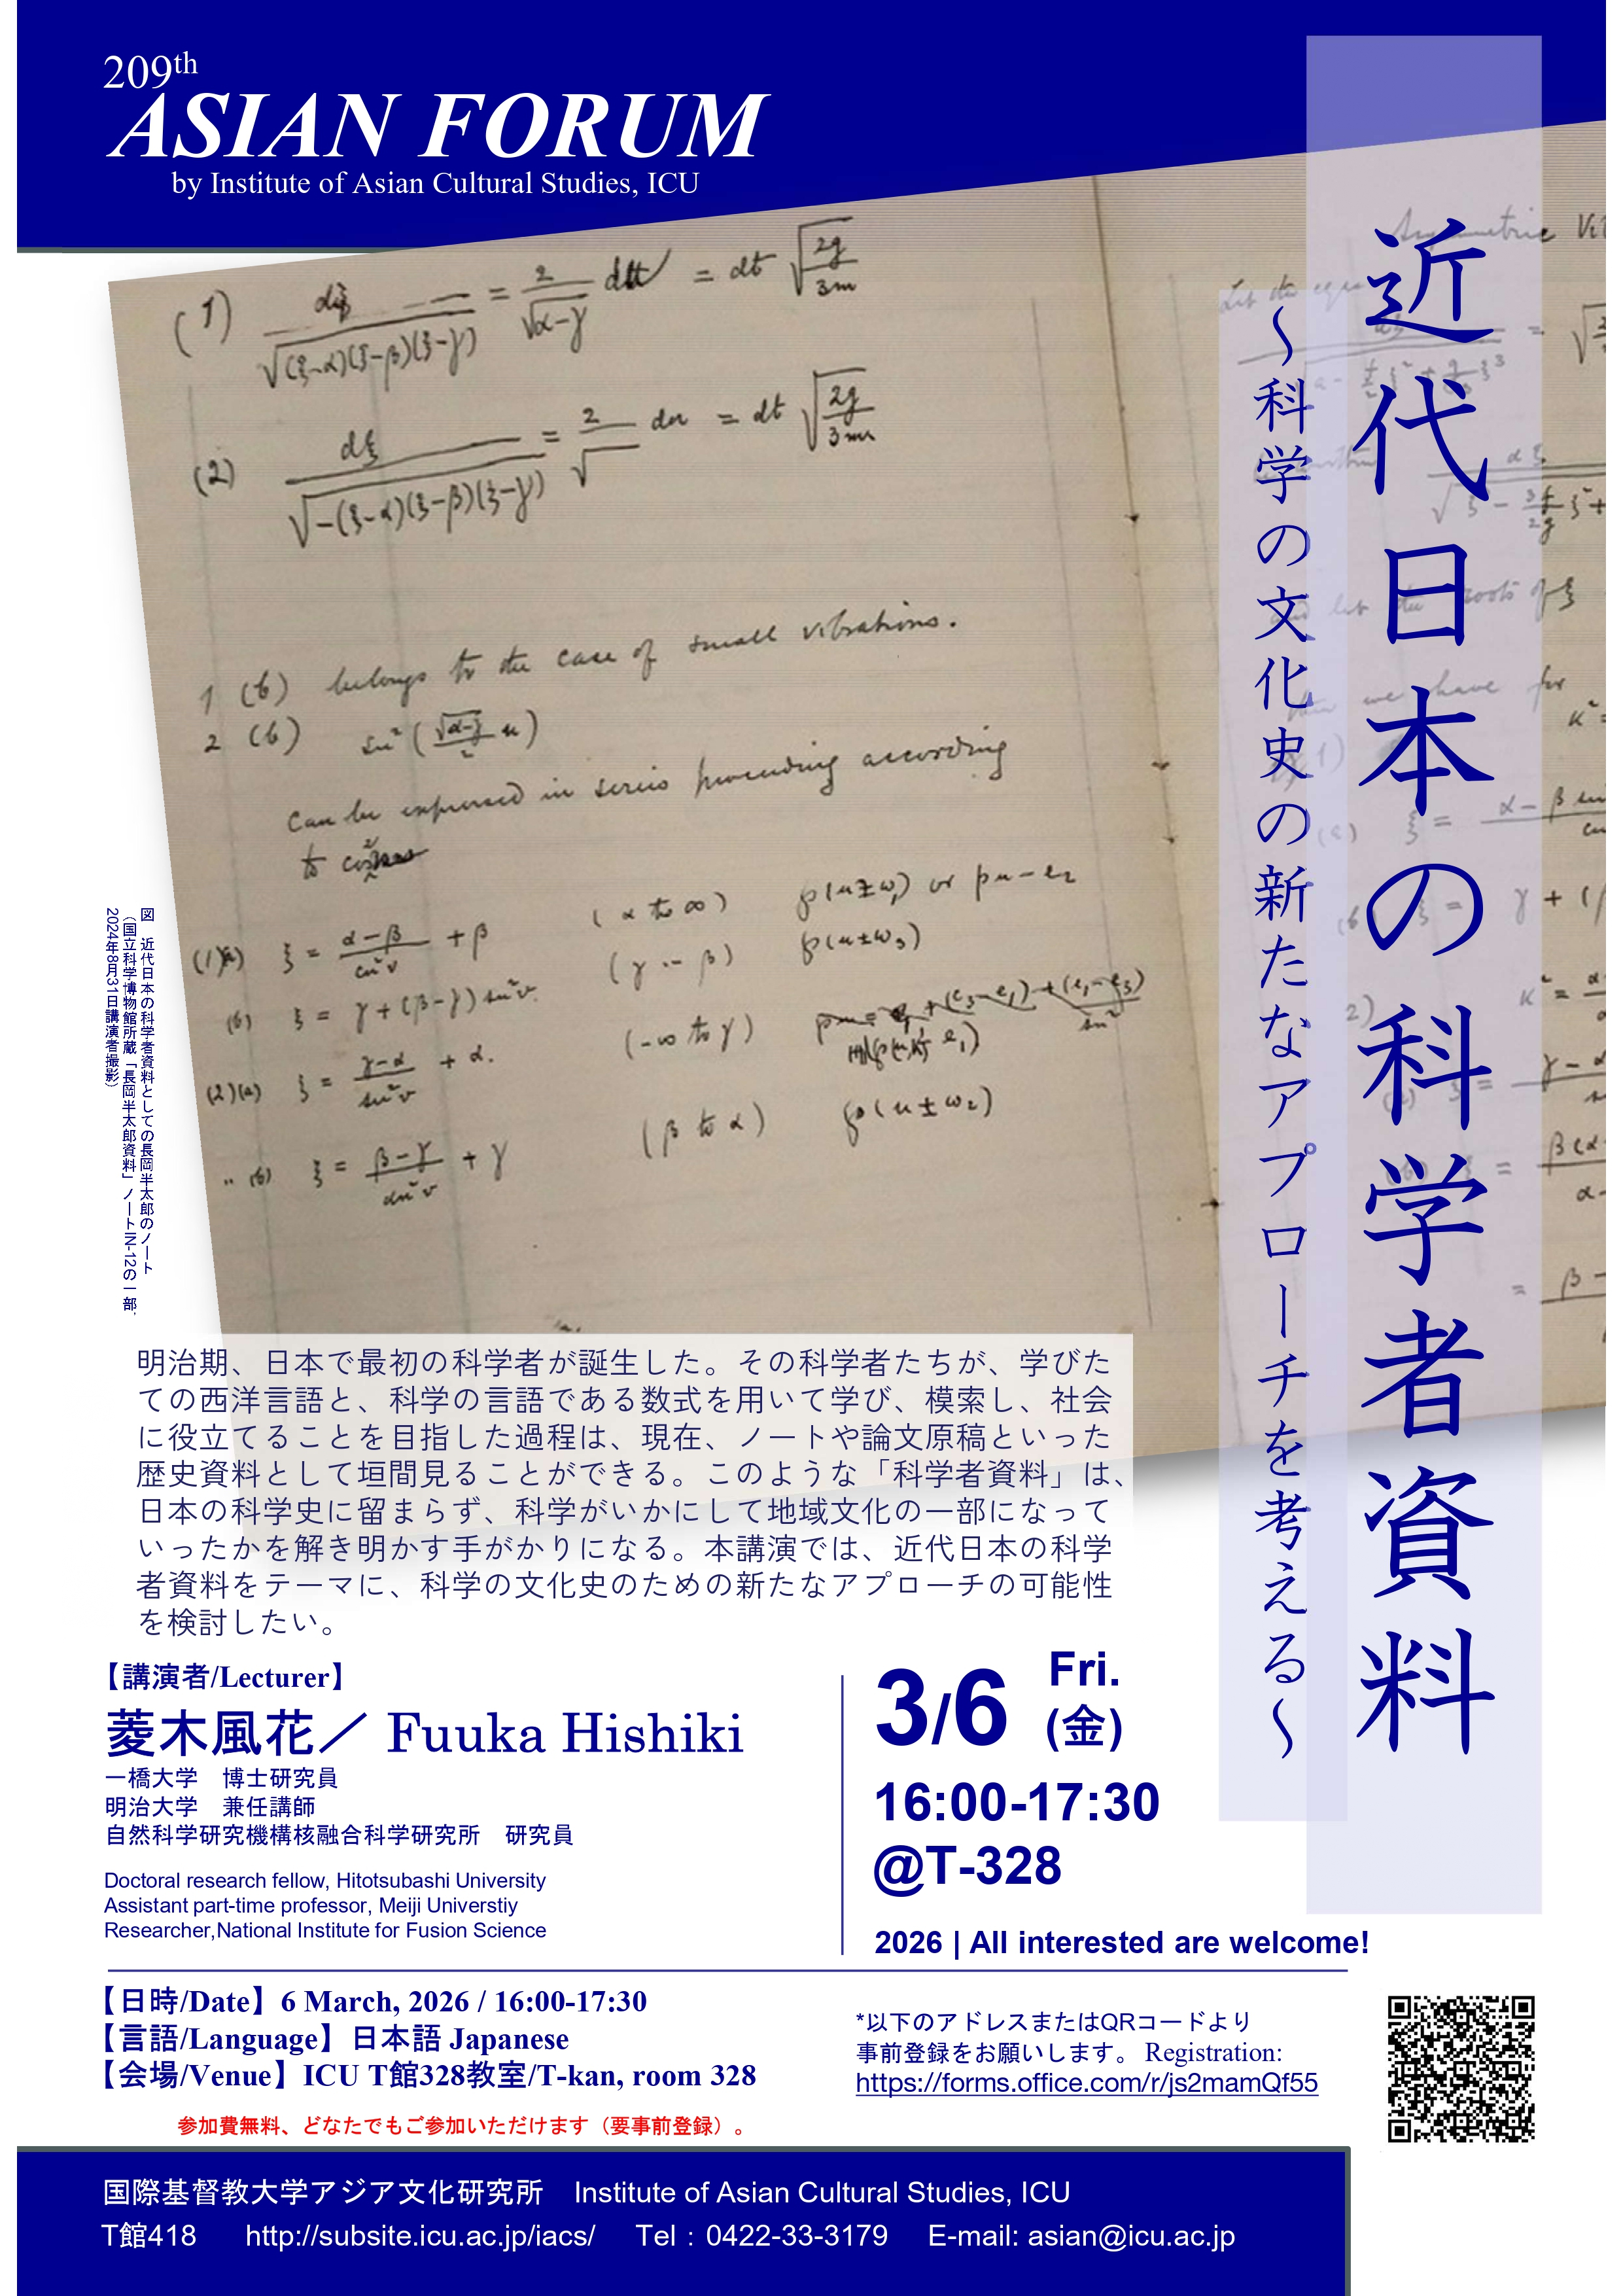 209th
ASIAN FORUM
by Institute of Asian Cultural Studies, ICU
近代日本の科学者資料
～科学の文化史の新たなアプローチを考える～
(1) dξ / √(ξ-α)(ξ-β)(ξ-γ) = 2 / √α-γ = dt √2g / 3m
(2) dξ / √-(ξ-α)(ξ-β)(ξ-γ) = 2 / √ du = dt √2g / 3m
1 (b) belongs to the case of small vibrations.
2 (b) sn² ( √α-γ / 2 u )
can be expressed in series proceeding according
to
(1)(a) ξ = α-β / cn²v + β (α to ∞) ℘(u±ω₁) or pu-e₂
(b) ξ = γ+(β-γ) sn²v (γ -- β) ℘(u±ω₃)
(2)(a) ξ = γ-α / sn²v + α. (-∞ to γ)
〃 (b) ξ = β-γ / dn²v + γ (β to α) ℘(u±ω₂)
図　近代日本の科学者資料としての長岡半太郎のノート
（国立科学博物館所蔵「長岡半太郎資料」ノートIN-12の一部、
2024年8月31日講演者撮影）
明治期、日本で最初の科学者が誕生した。その科学者たちが、学びた
ての西洋言語と、科学の言語である数式を用いて学び、模索し、社会
に役立てることを目指した過程は、現在、ノートや論文原稿といった
歴史資料として垣間見ることができる。このような「科学者資料」は、
日本の科学史に留まらず、科学がいかにして地域文化の一部になって
いったかを解き明かす手がかりになる。本講演では、近代日本の科学
者資料をテーマに、科学の文化史のための新たなアプローチの可能性
を検討したい。
【講演者/Lecturer】
菱木風花／ Fuuka Hishiki
一橋大学　博士研究員
明治大学　兼任講師
自然科学研究機構核融合科学研究所　研究員
Doctoral research fellow, Hitotsubashi University
Assistant part-time professor, Meiji Universtiy
Researcher,National Institute for Fusion Science
3/6 Fri. (金)
16:00-17:30
@T-328
2026 | All interested are welcome!
【日時/Date】6 March, 2026 / 16:00-17:30
【言語/Language】日本語 Japanese
【会場/Venue】ICU T館328教室/T-kan, room 328
参加費無料、どなたでもご参加いただけます（要事前登録）。
*以下のアドレスまたはQRコードより
事前登録をお願いします。 Registration:
https://forms.office.com/r/js2mamQf55
国際基督教大学アジア文化研究所　Institute of Asian Cultural Studies, ICU
T館418　http://subsite.icu.ac.jp/iacs/　Tel：0422-33-3179　E-mail: asian@icu.ac.jp